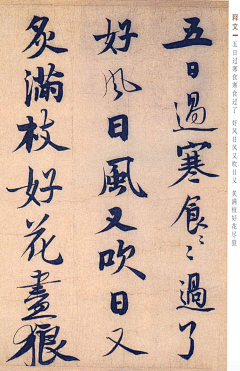 释文 五日过寒食寒食过了 好风日风又吹日又 炙满枝好花尽狼
五日過寒食〻過了
好風日風又吹日又
炙滿枝好花盡狼